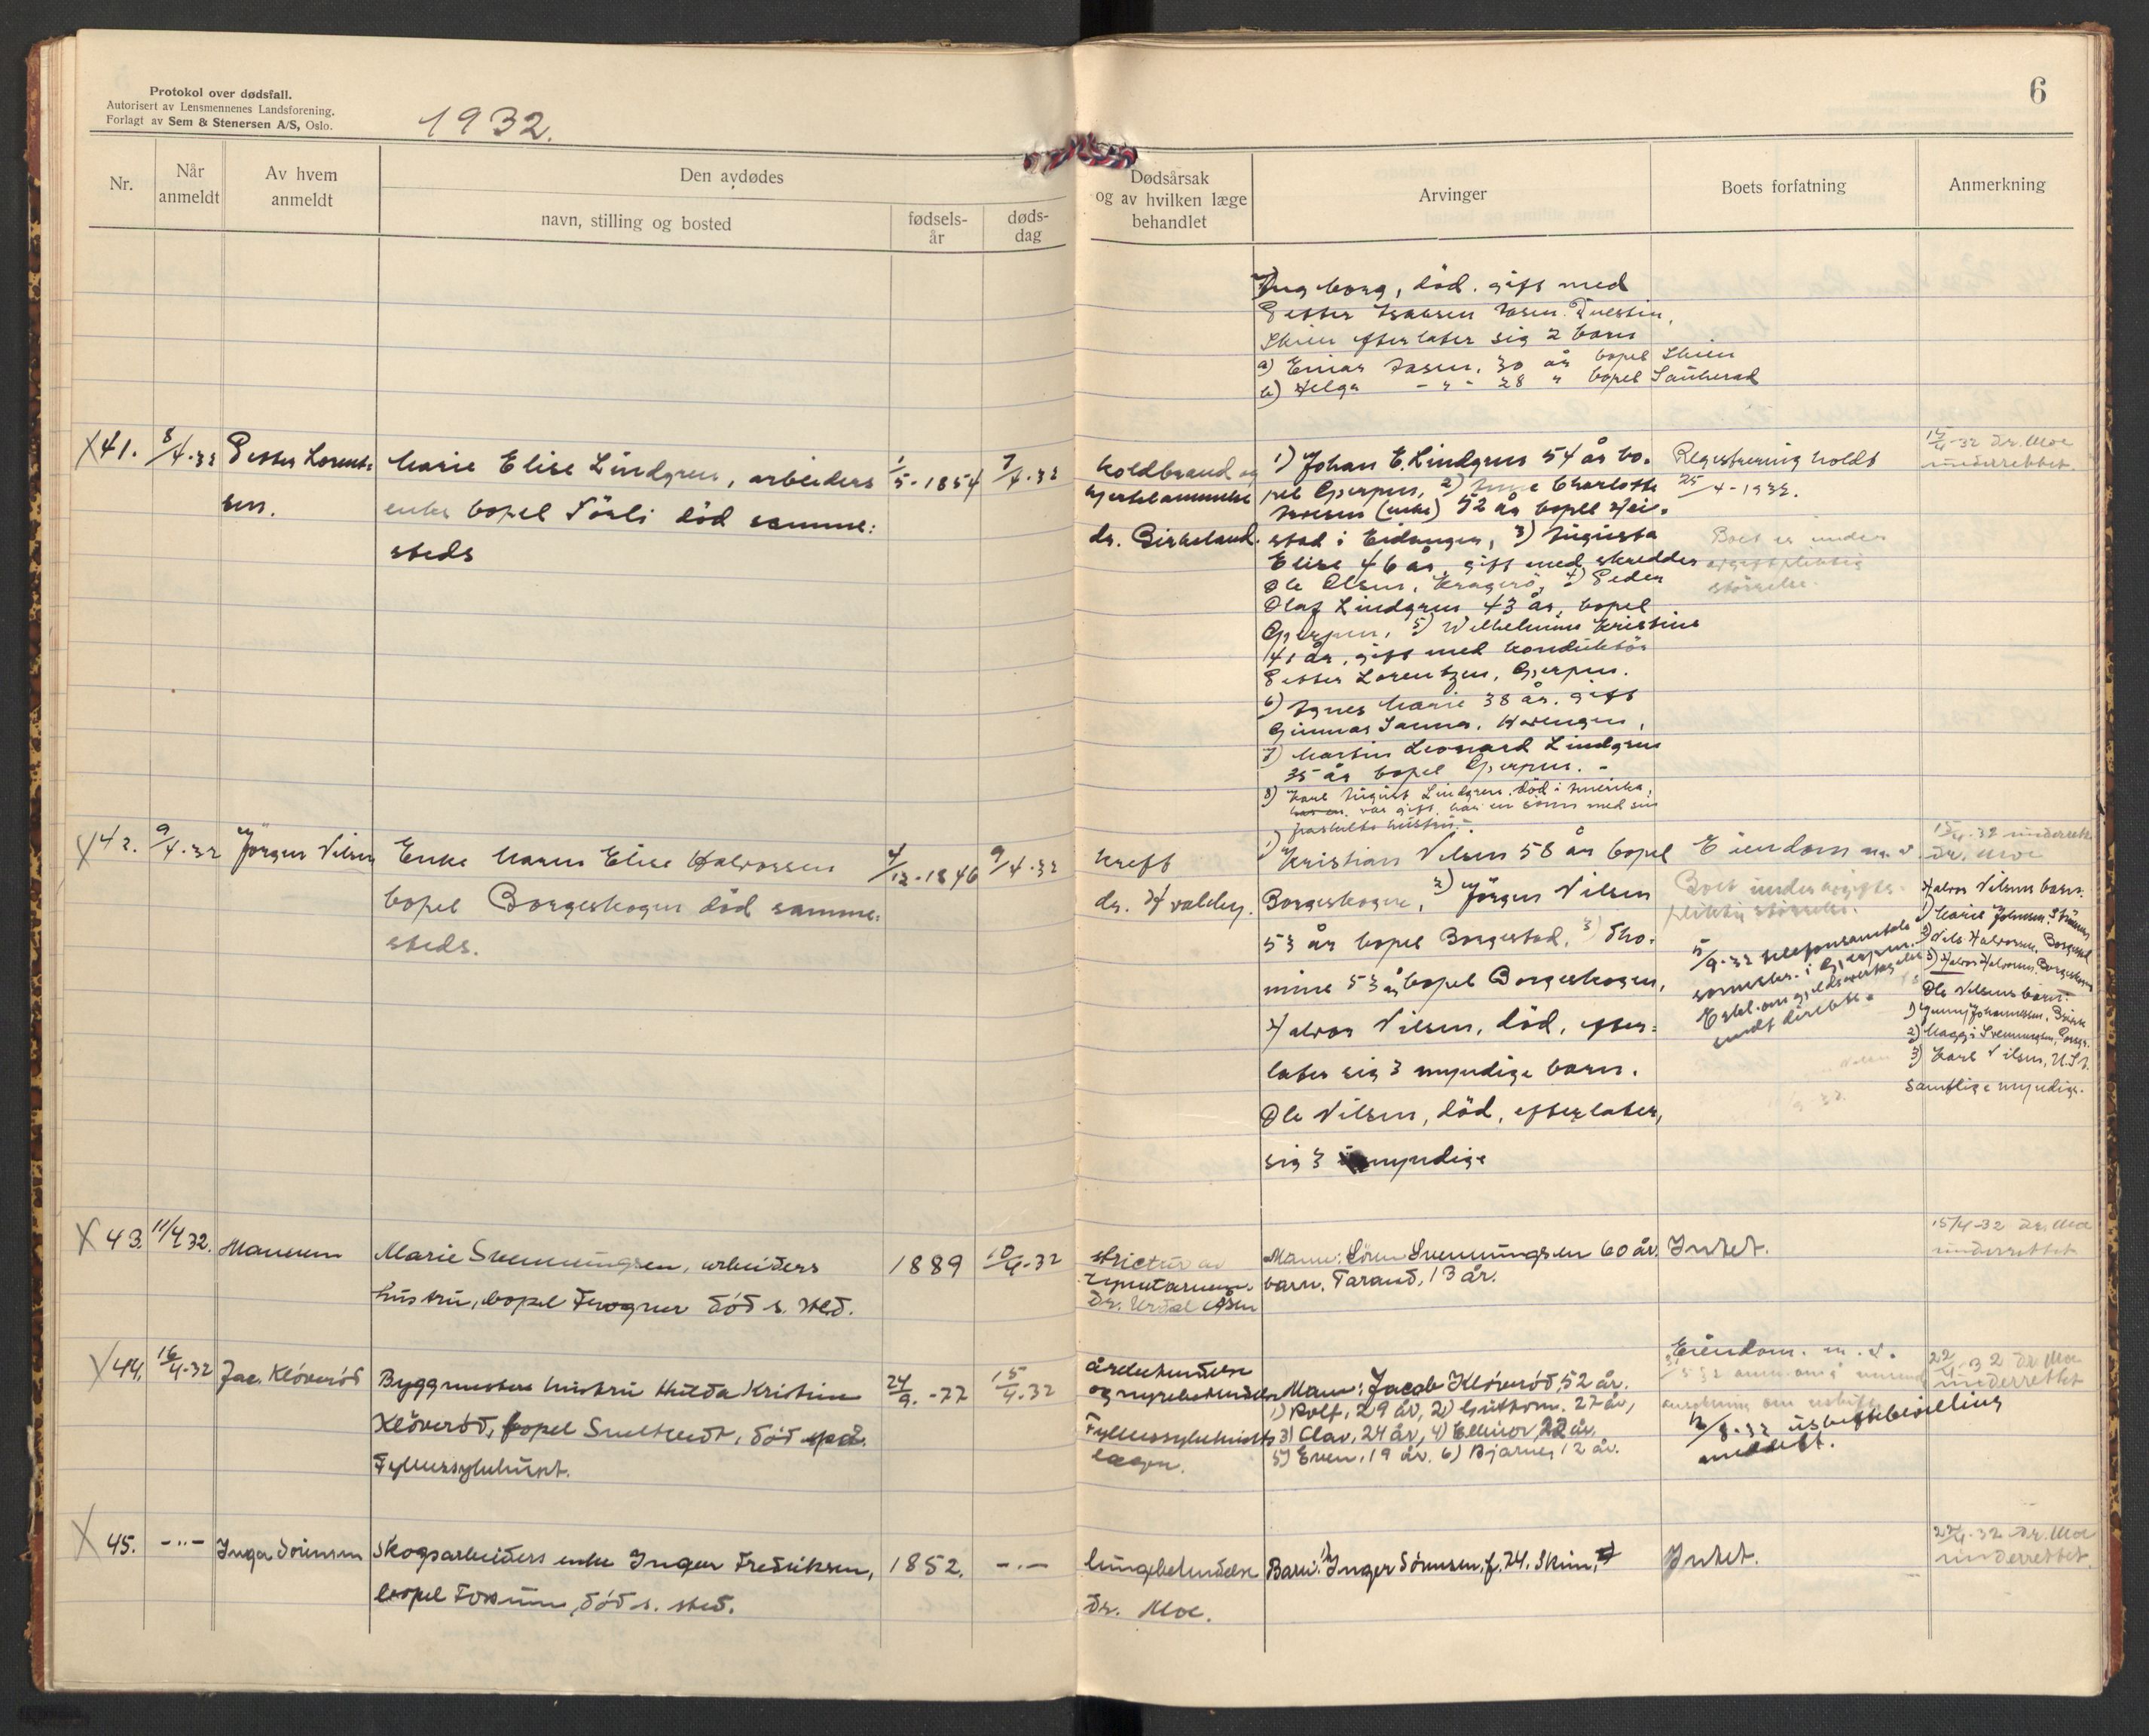 Protokol over dødsfall.
Autorisert av Lensmennenes Landsforening.
Forlagt av Sem & Stenersen A/S, Oslo.
1932.
6
Nr.
Når
anmeldt
Av hvem
anmeldt
Den avdødes
navn, stilling og bosted
fødsels-
år
døds-
dag
Dødsårsak
og av hvilken læge
behandlet
Arvinger
Boets forfatning
Anmerkning
Ingeborg, död. gift med
Petter
Skien efterlater sig 2 barn
a) Einar 30 år bopel Skien
b) Helga - " - 28 " bopel Sauherad
X 41.
8/4-32
Petter Lorent-
sen.
Marie Elise Lindgren, arbeiders
enke bopel Törli död samme:
steds
1/5-1854
7/4-32
Koldbrand og
hjertelammelse
dr. Birkeland.
1) Johan E. Lindgren 54 år bo-
pel Gjerpen, 2) Charlotte
(enke) 52 år bopel Hei-
stad i Eidanger, 3) Augusta
Elise 46 år, gift med skredder
Ole Olsen, Kragerö, 4) Peder
Olaf Lindgren 43 år, bopel
Gjerpen, 5) Wilhelmine Kristine
41 år, gift med konduktör
Petter Lorentzen, Gjerpen.
6) Agnes Marie 38 år. gift
Gunnar
7) Martin Leonard Lindgren
35 år bopel Gjerpen. -
8) Karl August Lindgren. död i Amerika,
var gift, har en sönn med sin
hustru.
Registrering holdt
25/4-1932.
Boet er under
avgiftspliktig
störrelse.
15/4-32 Dr. Moe
underrettet.
X 42.
9/4-32
Jörgen Nilsen
Enke Maren Elise Halvorsen
bopel Borgeskogen död samme:
steds.
4/12-1846
9/4-32
Kreft
dr. Hvalby.
1) Kristian Nilsen 58 år bopel
Borgeskogen, 2) Jörgen Nilsen
53 år bopel Borgestad, 3) Tho-
mine 53 år bopel Borgeskogen,
Halvor Nilsen, död, efter-
later sig 3 myndige barn.
Ole Nilsen, död, efterlater,
sig 3 myndige
Eiendom m. v.
Boet under avgifts-
pliktig störrelse.
5/9-32 telefonsamtale
i Gjerpen.
Erkl. om gjeldsovertagelse
sendt direkte.
15/4-32 underrettet
Dr. Moe
Halvor Nilsens barn.
1) Marie Johnsen,
2) Nils Halvorsen, Borgestad
3) Halvor Halvorsen, Borgeskogen
Ole Nilsens barn:
1) Johannessen,
2) Maggi Svenningsen,
3) Karl Nilsen, U.S.A.
Samtlige myndige.
X 43.
11/4 32.
Mannen
Marie Svenningsen, arbeiders
hustru, bopel Frogner död s. sted.
1889
10/4-32
strictur av
Dr. Urdal
Mann: Sören Svenningsen 60 år.
barn. Tarand, 13 år.
Intet.
15/4-32 Dr. Moe
underrettet
X 44.
16/4-32
Jac. Klöveröd
Byggmesters hustru Hulda Kristine
Klöveröd, bopel död på
Fylkessykehuset.
24/9.-77
15/4-32
årebetendelse
og nyrebetendelse
Fylkessykehusets
lægen.
Mann: Jacob Klöveröd, 52 år.
1) Rolf, 29 år, 2) Guthorm. 27 år,
3) Olav, 24 år, 4) Ellinor, 22 år.
5) Even, 19 år. 6) Bjarne, 12 år.
Eiendom. m. v.
12/8-32 uskiftebevilling
meddelt.
22/4-32 Dr. Moe
underrettet
X 45.
-"-
Inga Sörensen
Skogsarbeiders enke Inger Fredriksen,
bopel Fossum, död s. sted.
1852.
-"-
lungebetendelse
Dr. Moe.
Barn: 1) Inger Sörensen, f. 74. Skien,
Intet.
22/4-32 Dr. Moe
underrettet.